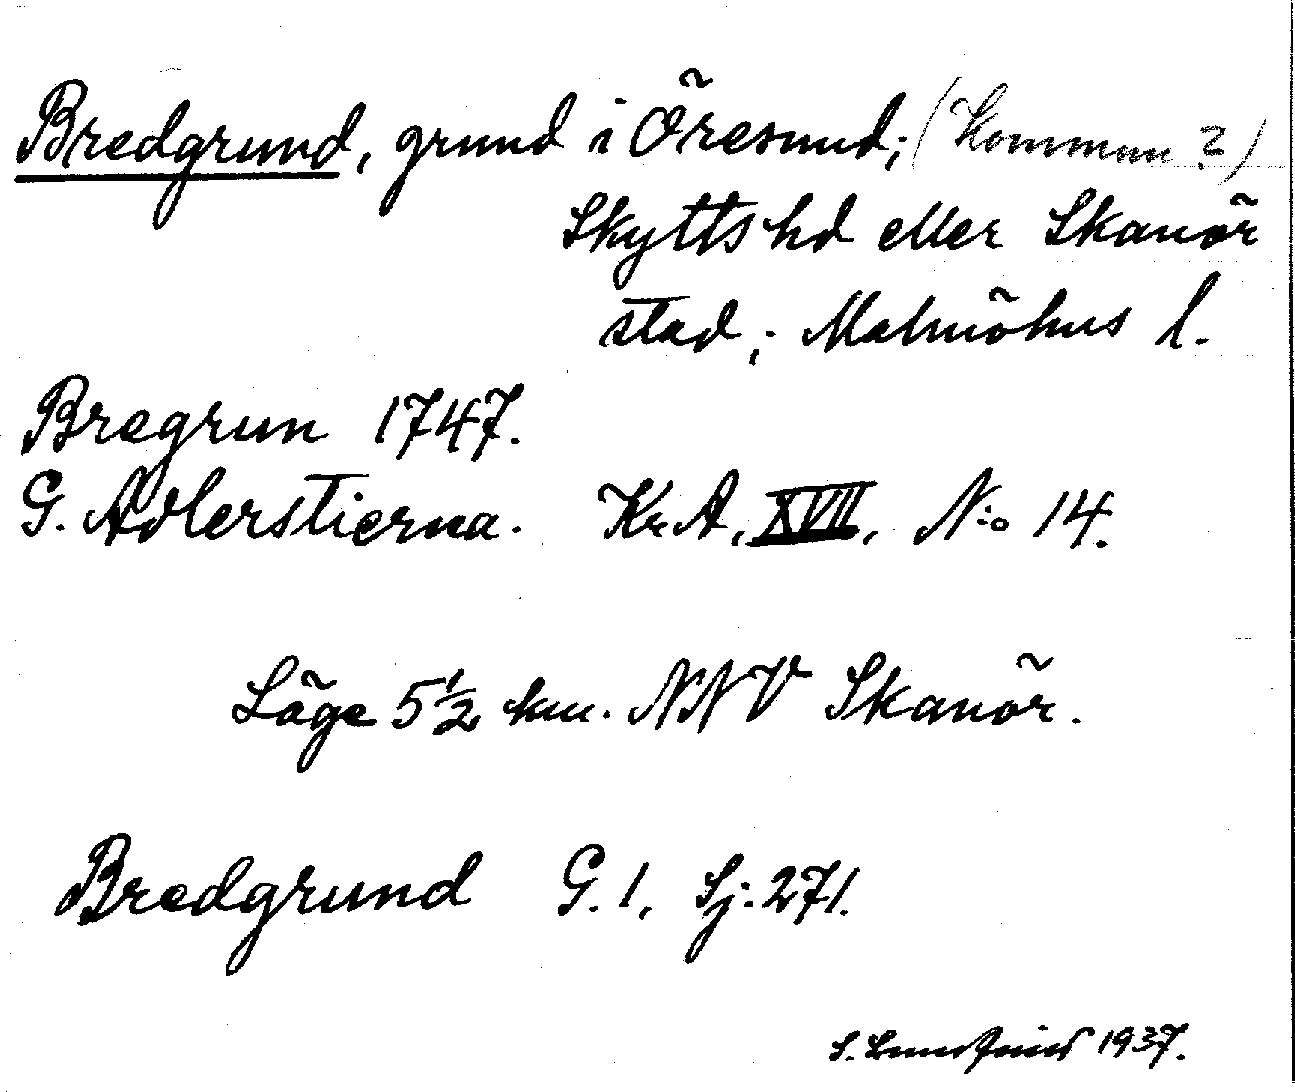 Bredgrund, grund i Öresund; (Kommun ?)
Skytts hd eller Skanör
stad; Malmöhus l.
Bregrun 1747.
G. Adlerstierna. Kr.A, XVII, N:o 14.
Läge 5 1/2 km. NNV Skanör.
Bredgrund G. 1, Sj: 271.
S. 1937.